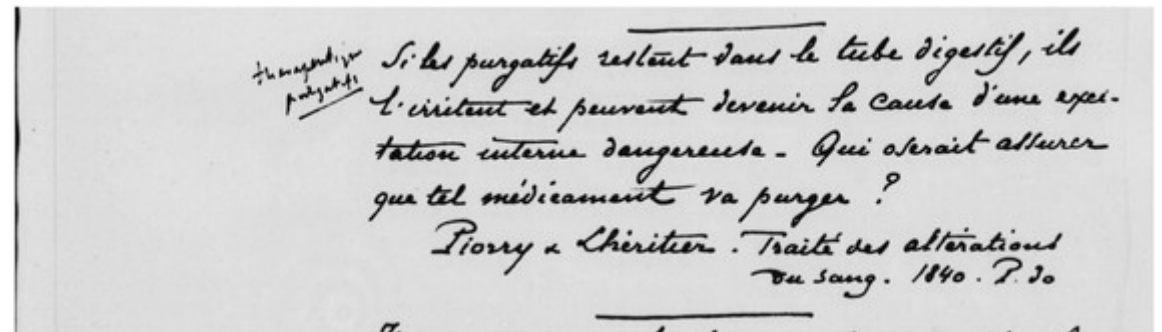 thérapeutique
purgatifs
Si les purgatifs restent dans le tube digestif, ils
l'irritent et peuvent devenir la cause d'une exci-
tation interne dangereuse - Qui oserait assurer
que tel médicament va purger ?
Piorry & Lhéritier. Traité des altérations
du sang. 1840. P. 30